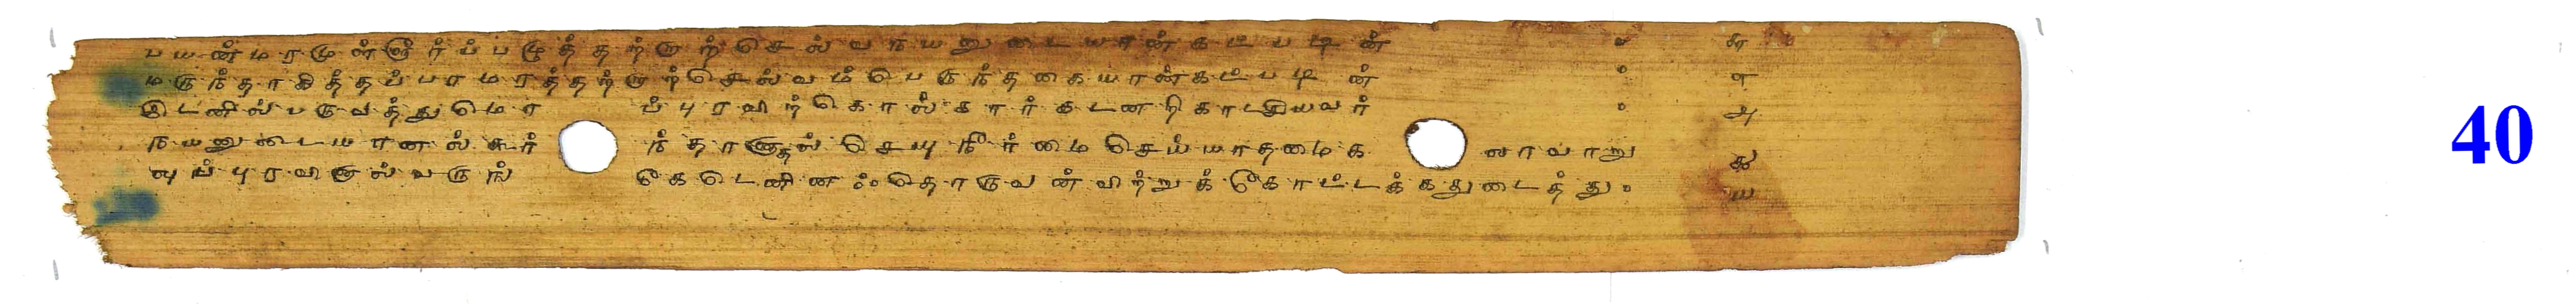 பயன்மரமுள்ளூர்ப்பழுத்தற்றாற்செல்வநயனுடையான்கட்படின் ௬
மருந்தாகித்தப்பாமரத்தற்றாற்செல்வம்பெருந்தகையான்கட்படின் ௭
இடனில்பருவத்துமொப்புரவிற்கொல்கார்கடனறிகாட்சியவர் ௮
நயனுடையானல்கூர்ந்தானாதல்செயுநீர்மைசெய்யாதமைகலாவாறு ௯
ஒப்புரவினால்வருங்கேடெனினஃதொருவன்விற்றுக்கோட்டக்கதுடைத்து ௰
40